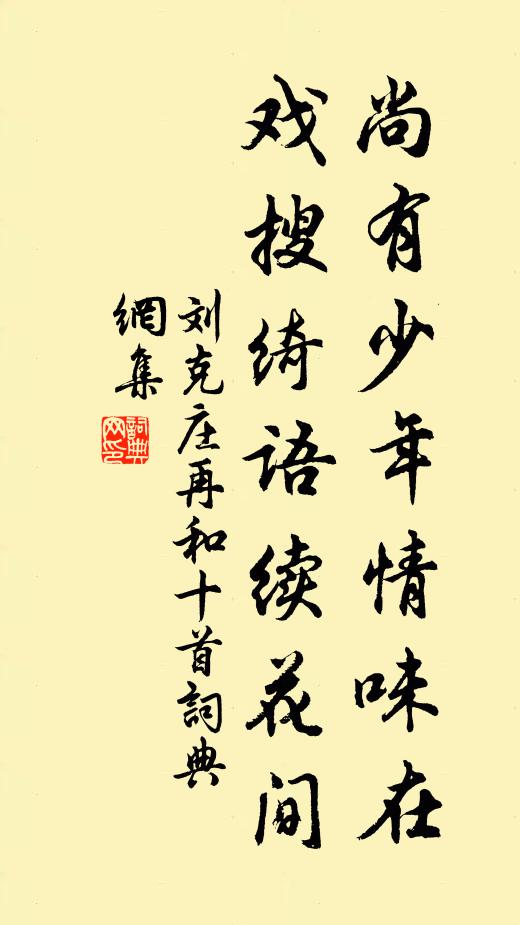 尚有少年情味在
戏搜绮语续花间
刘克庄再和十首詞典
網集
詞典
网印